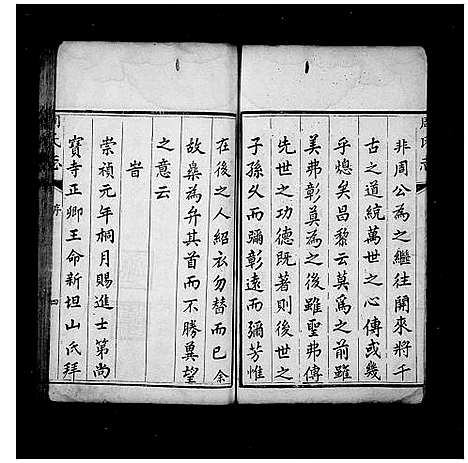 非周公為之繼往開來將千
古之道統萬世之心傳或幾
乎熄矣昌黎云莫為之前雖
美弗彰莫為之後雖聖弗傳
先世之功德既著則後世之
子孫久而彌彰遠而彌芳惟
在後之人紹衣勿替而已余
故樂為弁其首而不勝冀望
之意云
旹
崇禎元年桐月賜進士第尚
寶寺正卿王命新坦山氏拜
周氏志
序
四